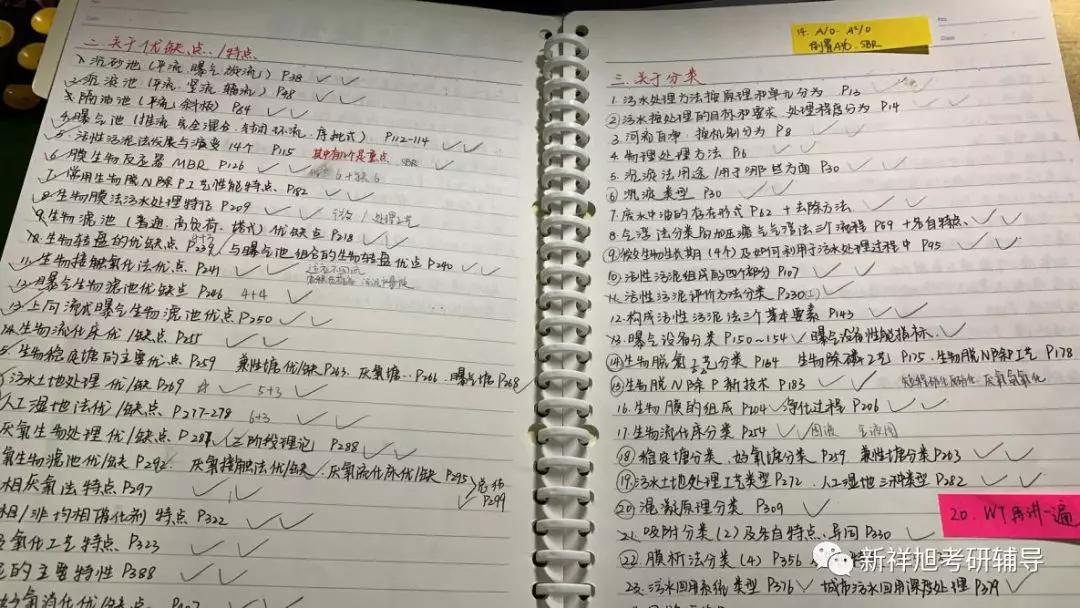 二. 关于优缺点/特点
1. 沉砂池(平流.曝气.旋流) P38
2. 沉淀池(平流.竖流.辐流) P48
3. 隔油池(平流.斜板) P64
4. 曝气池(推流.完全混合.封闭环流.序批式) P112-114
5. 活性污泥法发展与演变 14个 P115 其中有几个是重点 SBR
6. 膜生物反应器 MBR P126 6+缺6
7. 常用生物脱N除P工艺性能特点. P182
8. 生物膜法污水处理特征 P209
9. 生物滤池(普通.高负荷.塔式)优缺点 P218
10. 生物转盘的优缺点 P239 与曝气池组合的生物转盘优点 P240
11. 生物接触氧化法优点. P241
12. 曝气生物滤池优缺点 P246 4+4
13. 上向流式曝气生物滤池优点 P250
14. 生物流化床优/缺点 P255
生物稳定塘的主要优点 P259 兼性塘优/缺 P263. 厌氧塘.. P266. 曝气塘 P268
污水土地处理优/缺点 P269 ☆ 5+3
人工湿地法优/缺点. P277-278 6+3
厌氧生物处理优/缺点 P281 (三阶段理论) P288
氧生物滤池优/缺 P292. 厌氧接触法优/缺. 厌氧流化床优/缺 P295 总结 P299
相厌氧法特点 P297
相/非均相催化剂特点 P322
氧化工艺特点. P323
的主要特性 P388
14. A/O. A²/O
倒置A²/O. SBR
三. 关于分类
1. 污水处理方法按原理和单元分为 P13
② 污水按处理的目标和要求.处理程度分为 P14
3. 河流自净.按机制分为 P8
4. 物理处理方法 P16
5. 沉淀法用途/用于哪些方面 P30
⑥ 沉淀类型 P30
7. 废水中油的存在形式 P62 + 去除方法
8. 气浮法分类 加压溶气气浮法三个流程 P69 + 各自特点.
⑨ 微生物生长期(4个)及如何利用于污水处理过程中 P95
⑩ 活性污泥组成的四个部分 P107
11. 活性污泥评价方法分类 P230(工)
12. 构成活性污泥法三个基本要素 P143
13. 曝气设备分类 P150~154 曝气设备性能指标.
⑭ 生物脱氮工艺分类 P164 生物除磷工艺 P175. 生物脱N除P工艺 P178
⑮ 生物脱N除P新技术 P183 短程硝化反硝化. 厌氧氨氧化
16. 生物膜的组成 P204 净化过程 P206
17. 生物流化床分类 P254
⑱ 稳定塘分类.好氧塘分类 P259 兼性塘分类 P263
⑲ 污水土地处理工艺类型 P272. 人工湿地三种类型 P282
⑳ 混凝原理分类 P309
20. WT再讲一遍
21. 吸附分类(2)及各自特点.异同 P330
22. 膜析法分类(4) P356
23. 污水回用系统类型 P376 城市污水回用深度处理 P379
新祥旭考研辅导